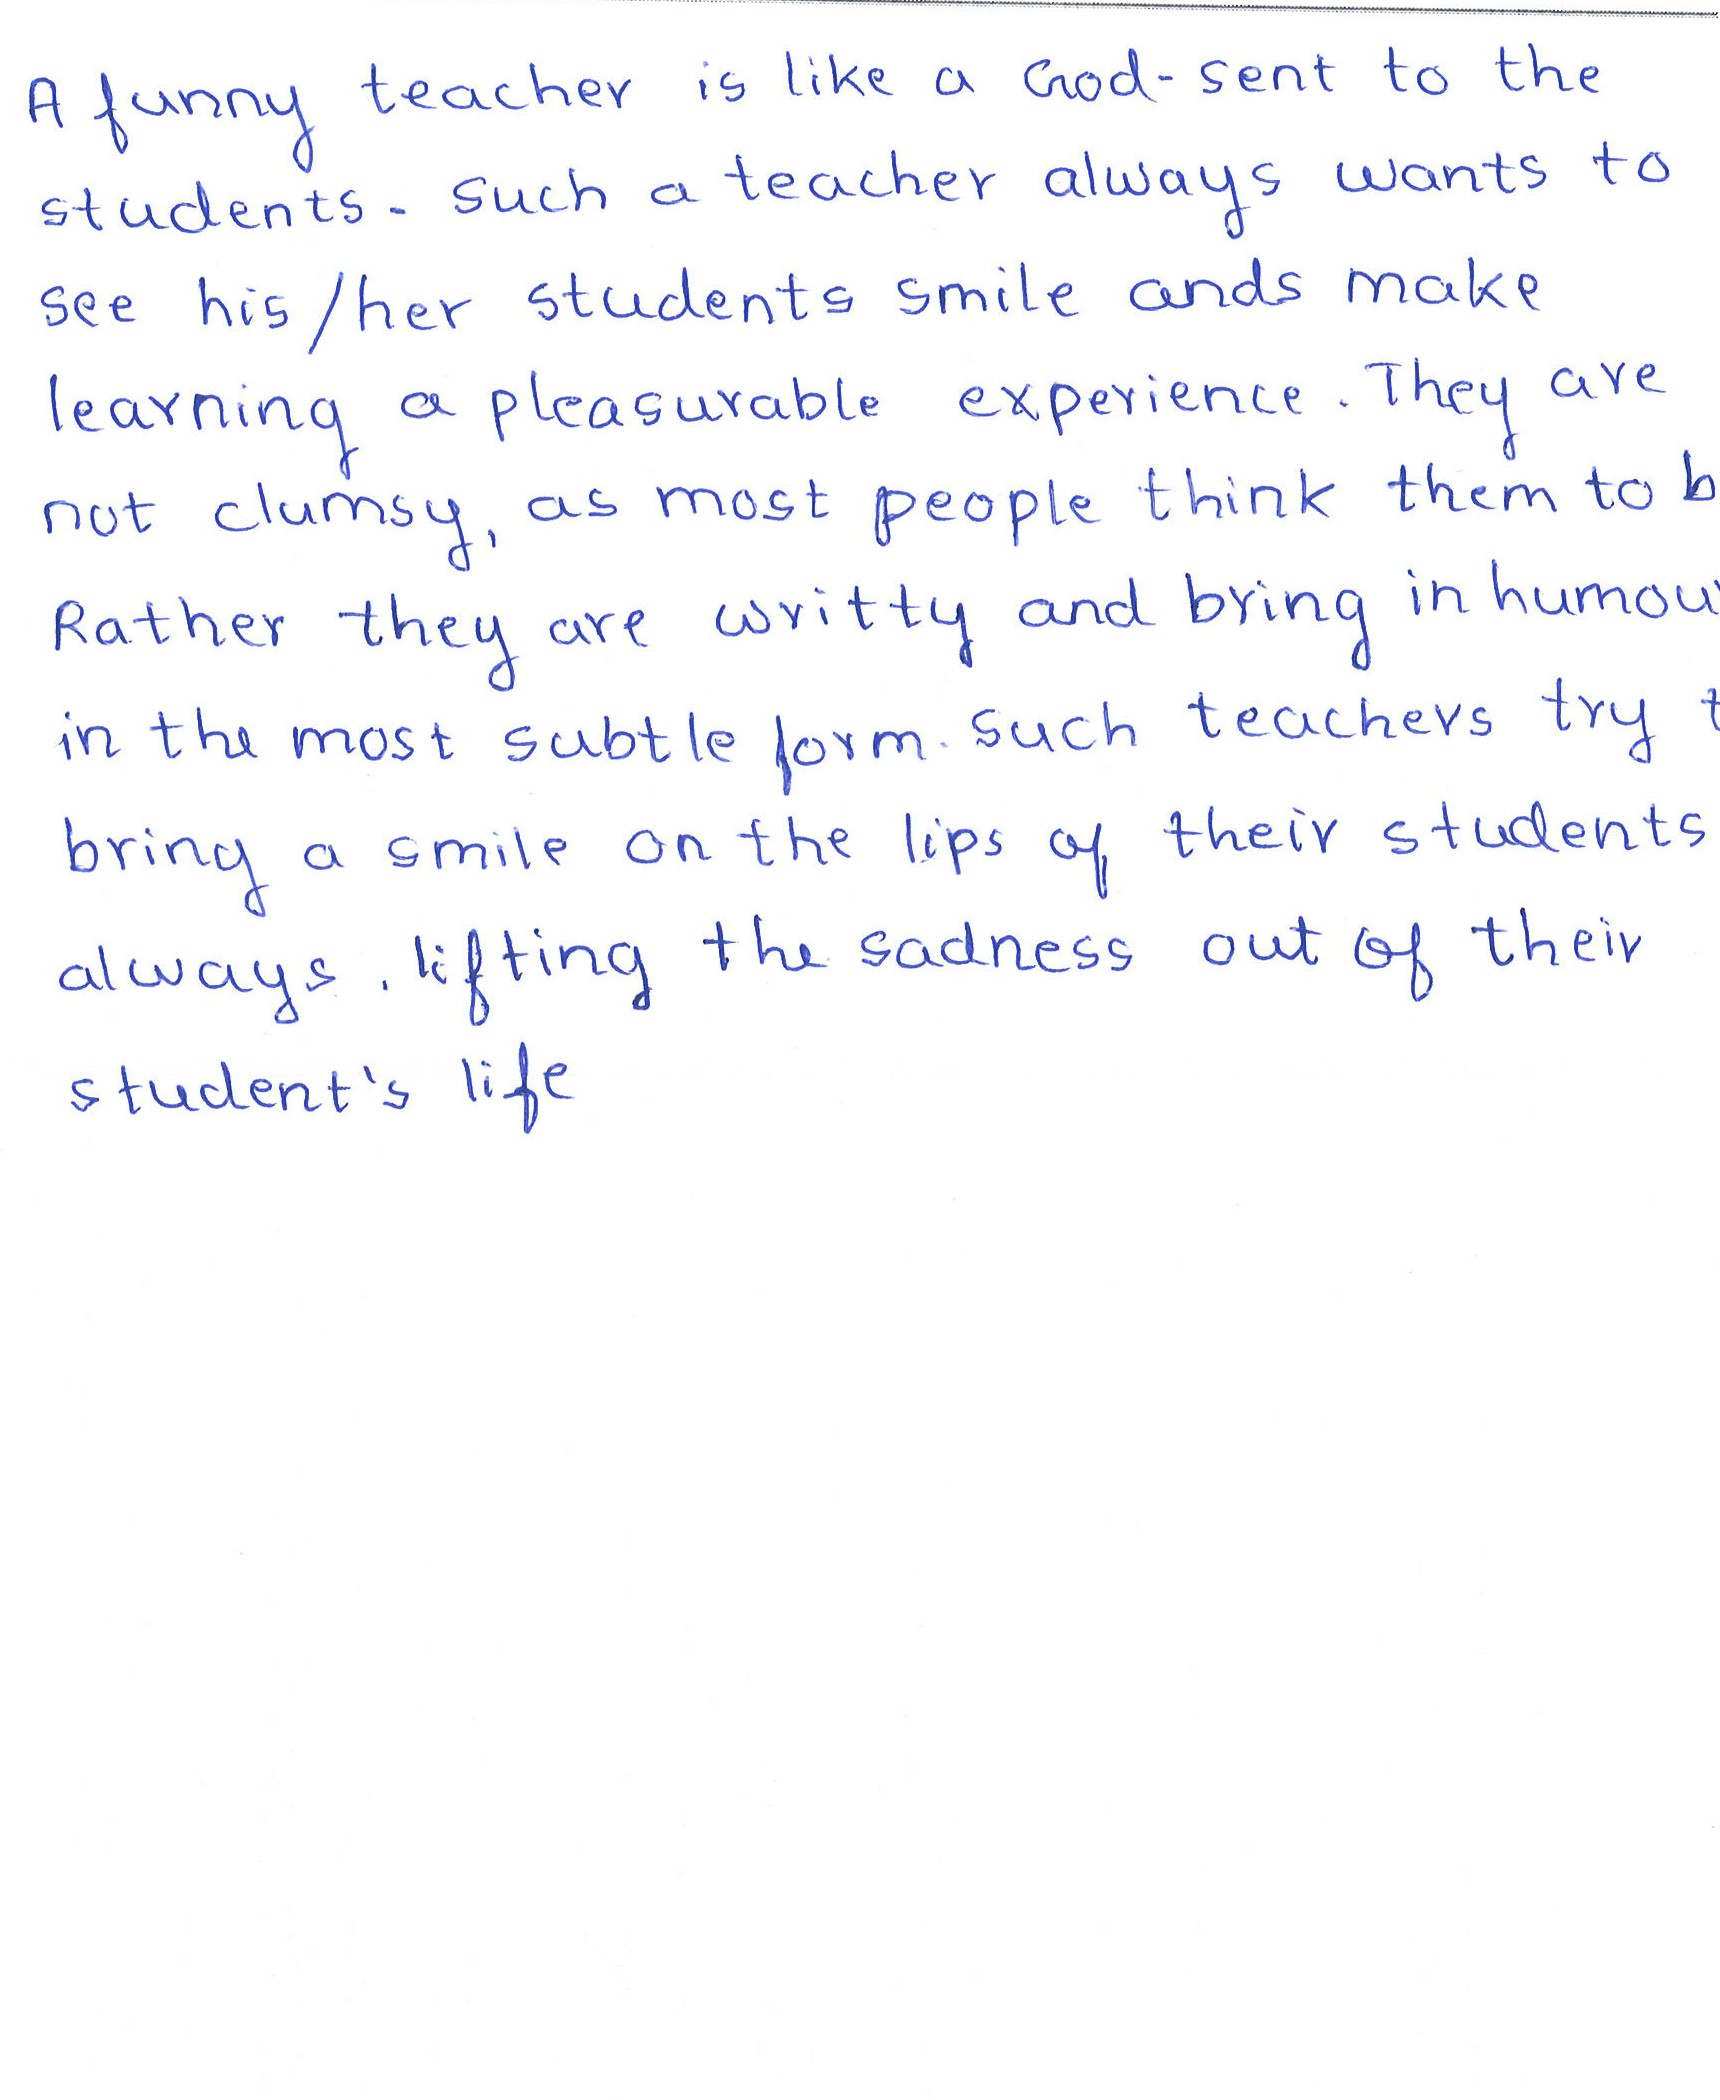 A funny teacher is like a God-sent to the
students. Such a teacher always wants to
see his/her students smile ands make
learning a pleasurable experience. They are
not clumsy, as most people think them to b
Rather they are writty and bring in humou
in the most subtle form. Such teachers try t
bring a smile on the lips of their students
always, lifting the sadness out of their
student's life